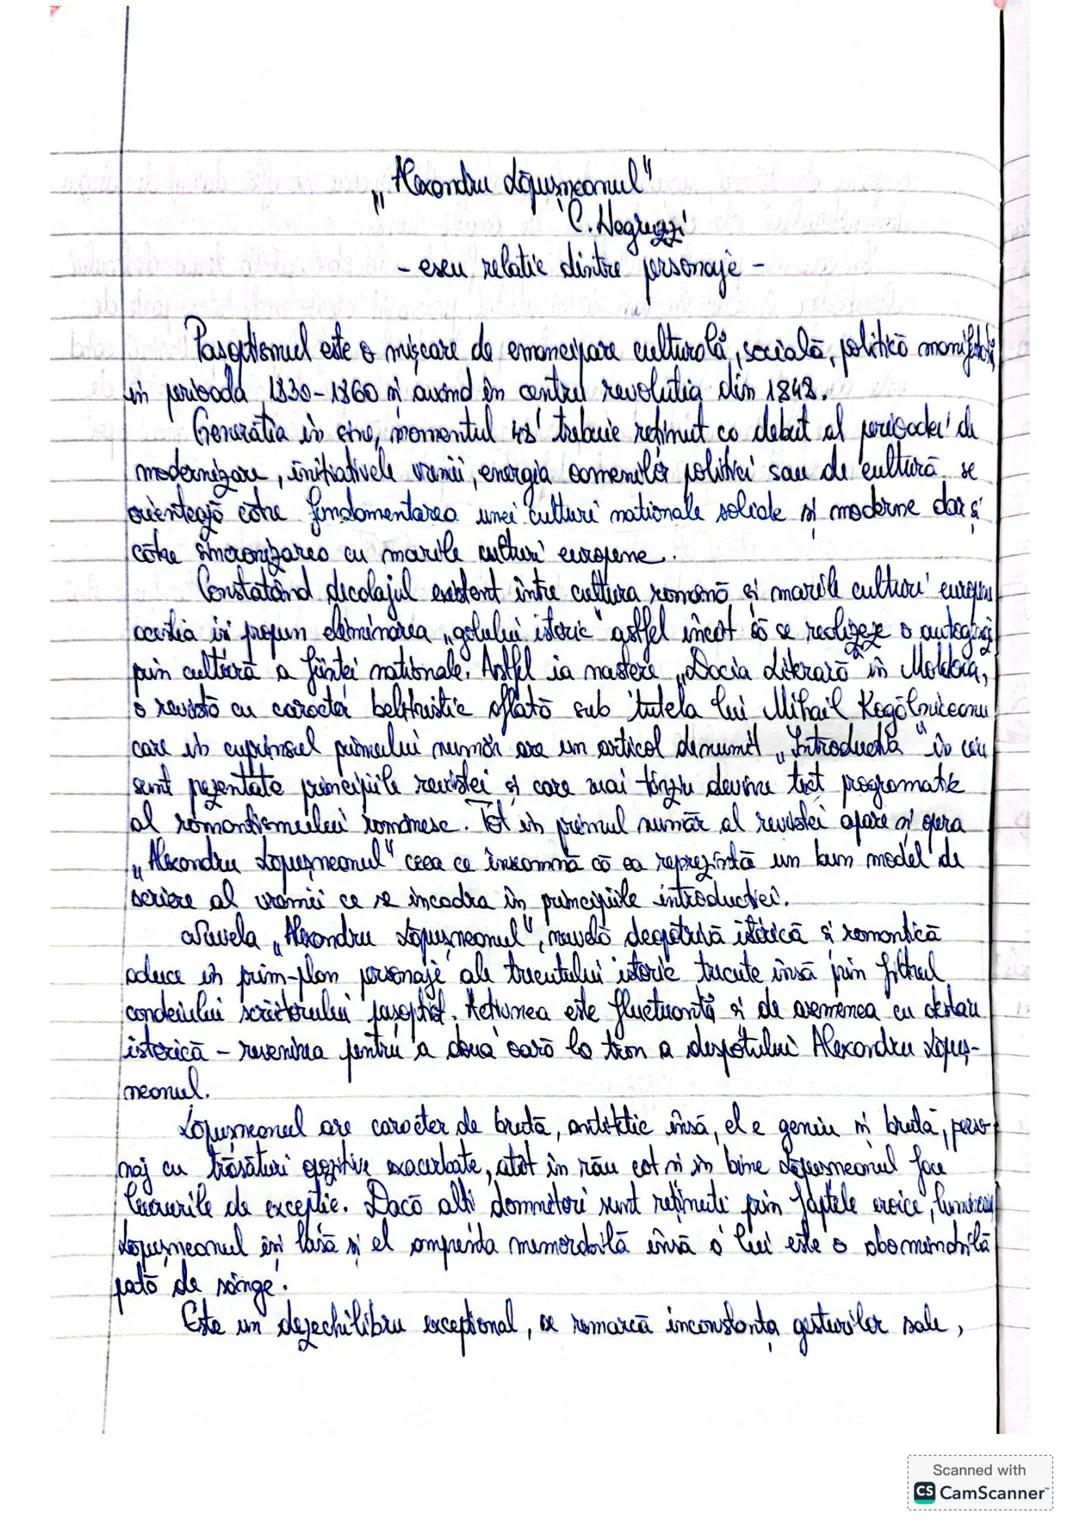 „Alexandru Lăpușneanul"
C. Negruzzi
- eseu relație dintre personaje -
Pașoptismul este o mișcare de emancipare culturală, socială, politică manifestată
în perioada 1830-1860 și având în centru revoluția din 1848.
Generația în sine, momentul 48' trebuie reținut ca debut al perioadei de
modernizare, inițiativele vremii, energia oamenilor politici sau de cultură se
orientează către fundamentarea unei culturi naționale solide și moderne dar și
către sincronizarea cu marile culturi europene.
Constatând decalajul existent între cultura română și marile culturi europene
aceștia își propun eliminarea „golului istoric" astfel încât să se realizeze o
prin cultură a ființei naționale. Astfel ia naștere „Dacia Literară" în Moldova,
o revistă cu caracter beletristic aflată sub tutela lui Mihail Kogălniceanu
care în cuprinsul primului număr are un articol denumit „Introducția" în care
sunt prezentate principiile revistei și care mai târziu devine text programatic
al romantismului românesc. Tot în primul număr al revistei apare și opera
„Alexandru Lăpușneanul" ceea ce înseamnă că ea reprezintă un bun model de
scriere al vremii ce se încadra în principiile introducției.
Nuvela „Alexandru Lăpușneanul", nuvelă deopotrivă istorică și romantică
aduce în prim-plan personaje ale trecutului istoric trecute însă prin filtrul
condeiului scriitorului pașoptist. Acțiunea este fluctuantă și de asemenea cu
istorică - revenirea pentru a doua oară la tron a despotului Alexandru Lăpuș-
neanul.
Lăpușneanul are caracter de brută, antitetic însă, el e geniu și brută, perso-
naj cu trăsături opozitive exacerbate, atât în rău cât și în bine Lăpușneanul face
lucrurile de excepție. Dacă alți domnitori sunt reținuți prin faptele eroice,
Lăpușneanul își lasă și el amprenta memorabilă însă a lui este o abominabilă
pată de sânge.
Este un dezechilibru excepțional, se remarcă inconstanța gesturilor sale,
Scanned with
CS CamScanner